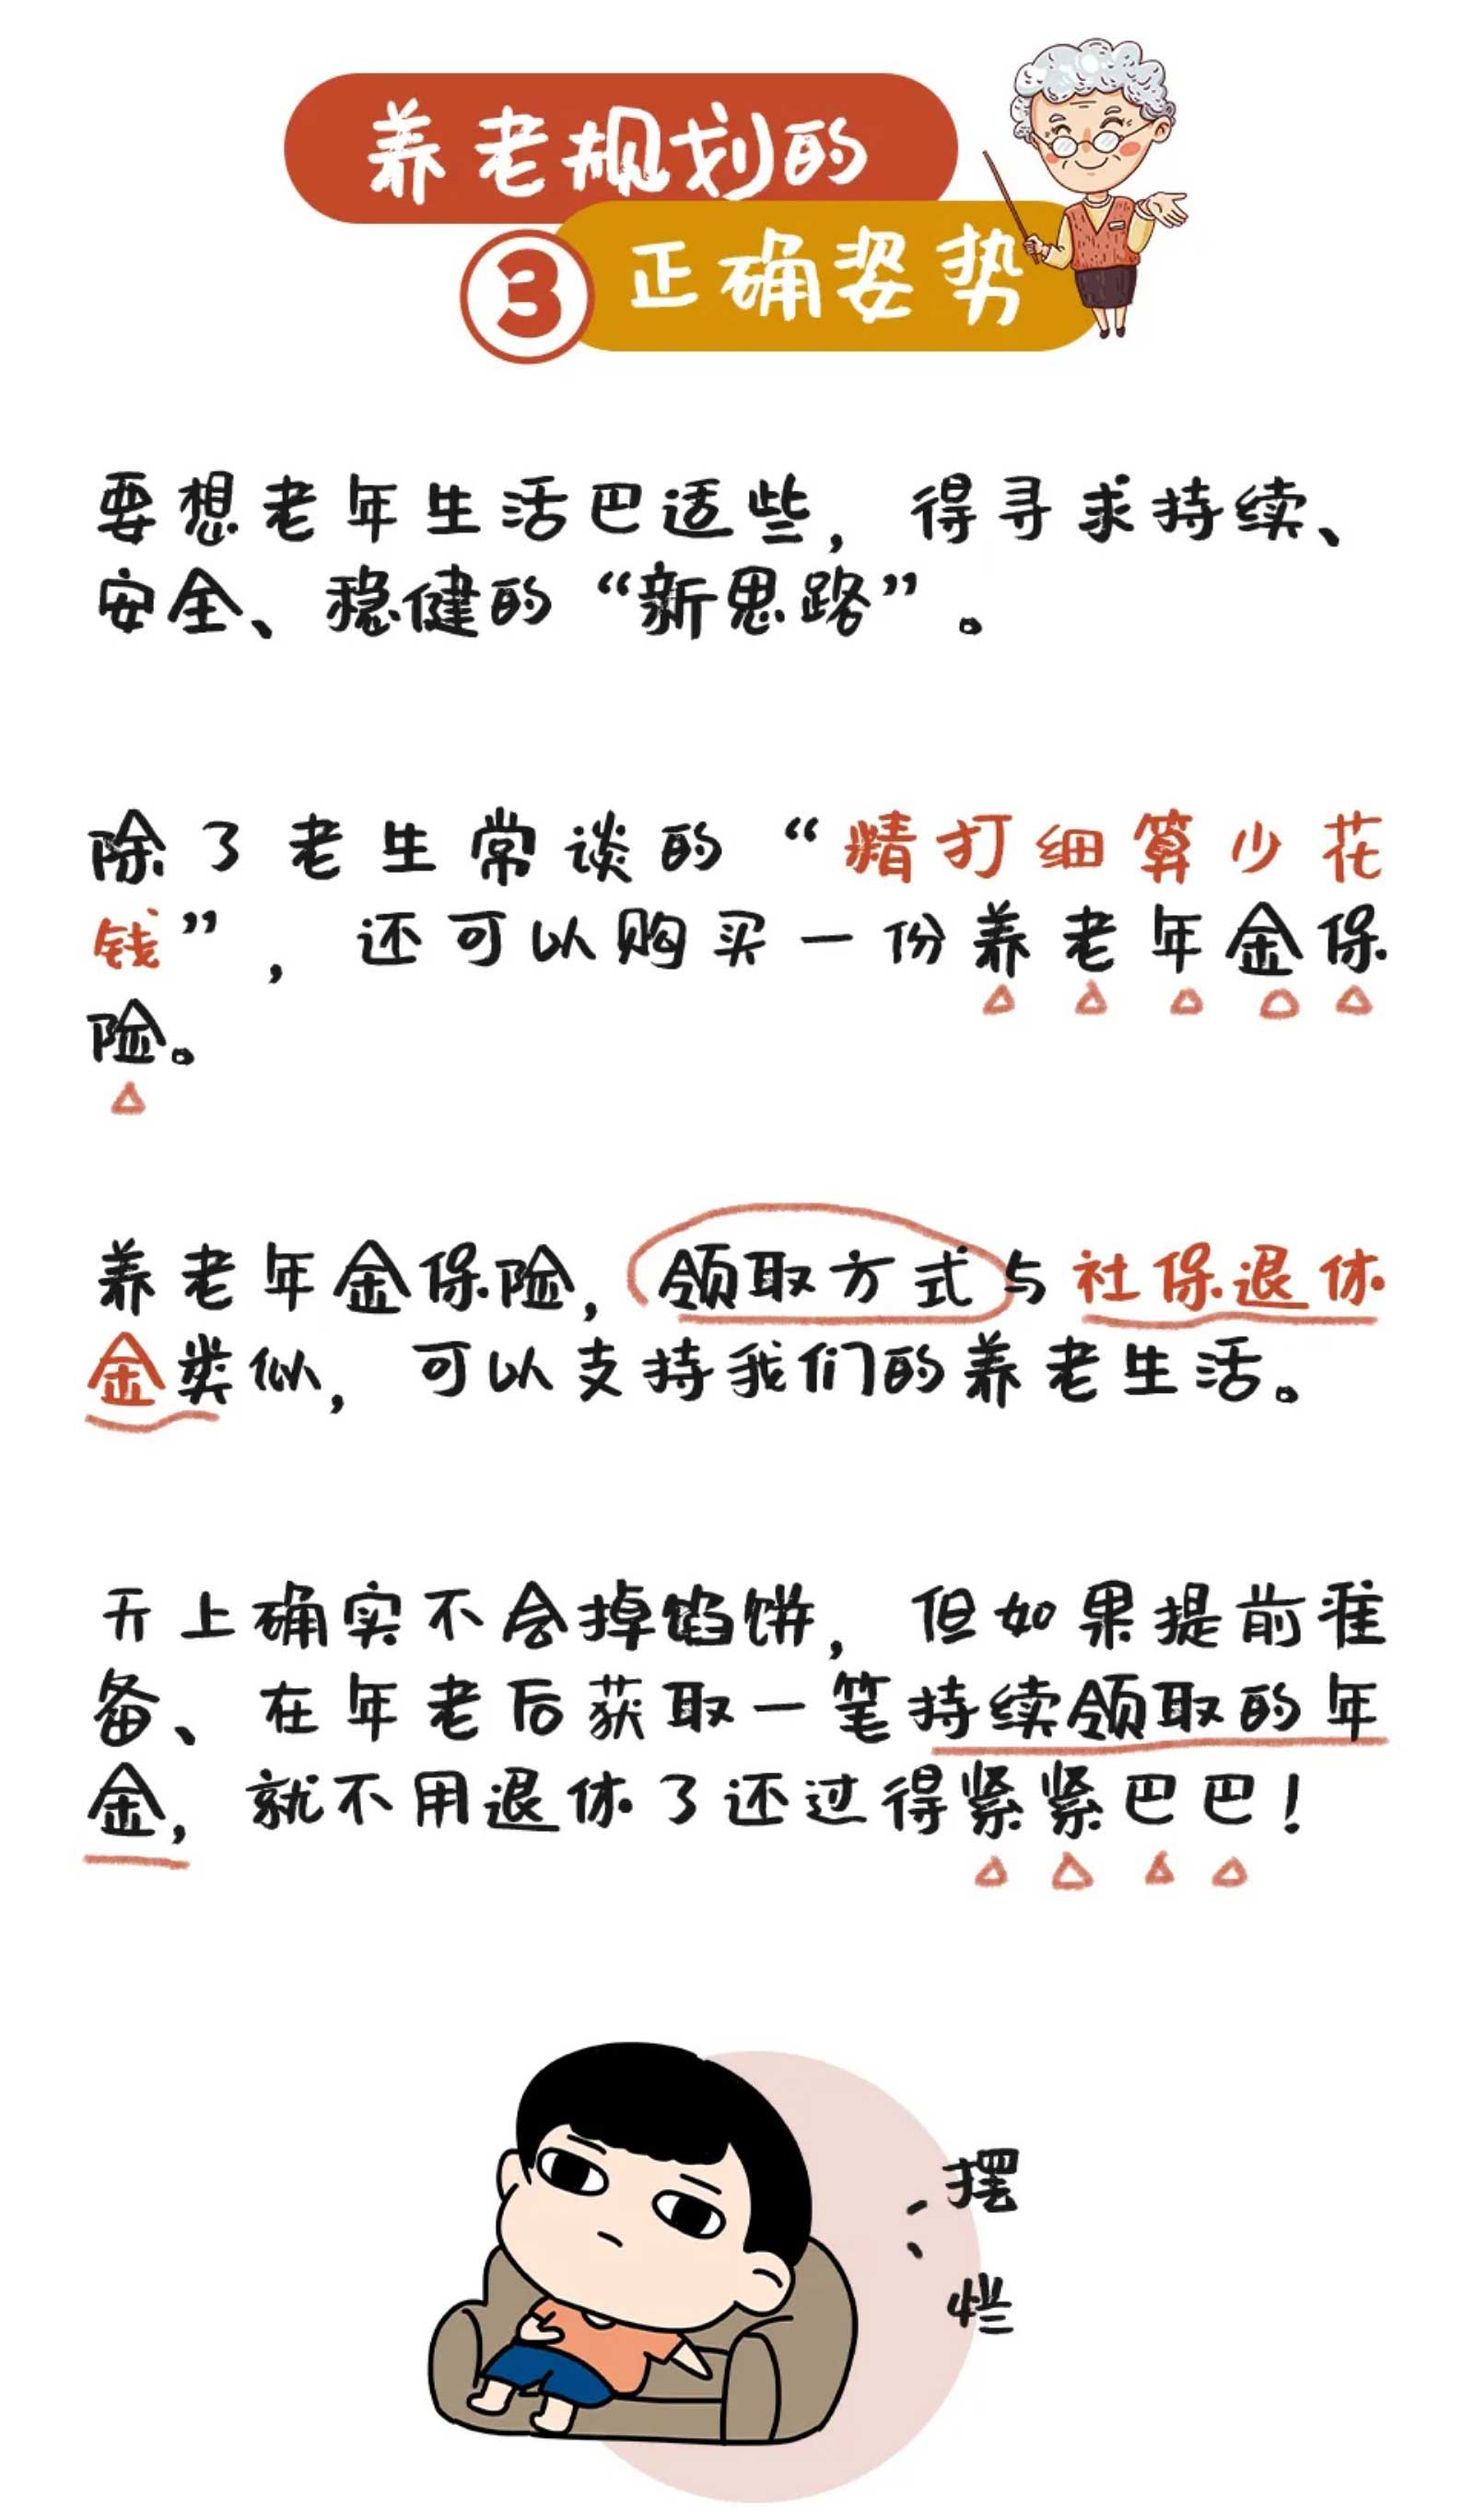 养老规划的
3 正确姿势
要想老年生活巴适些，得寻求持续、
安全、稳健的“新思路”。
除了老生常谈的“精打细算少花
钱”，还可以购买一份养老年金保
险。
养老年金保险，领取方式与社保退休
金类似，可以支持我们的养老生活。
天上确实不会掉馅饼，但如果提前准
备、在年老后获取一笔持续领取的年
金，就不用退休了还过得紧紧巴巴！
摆
烂